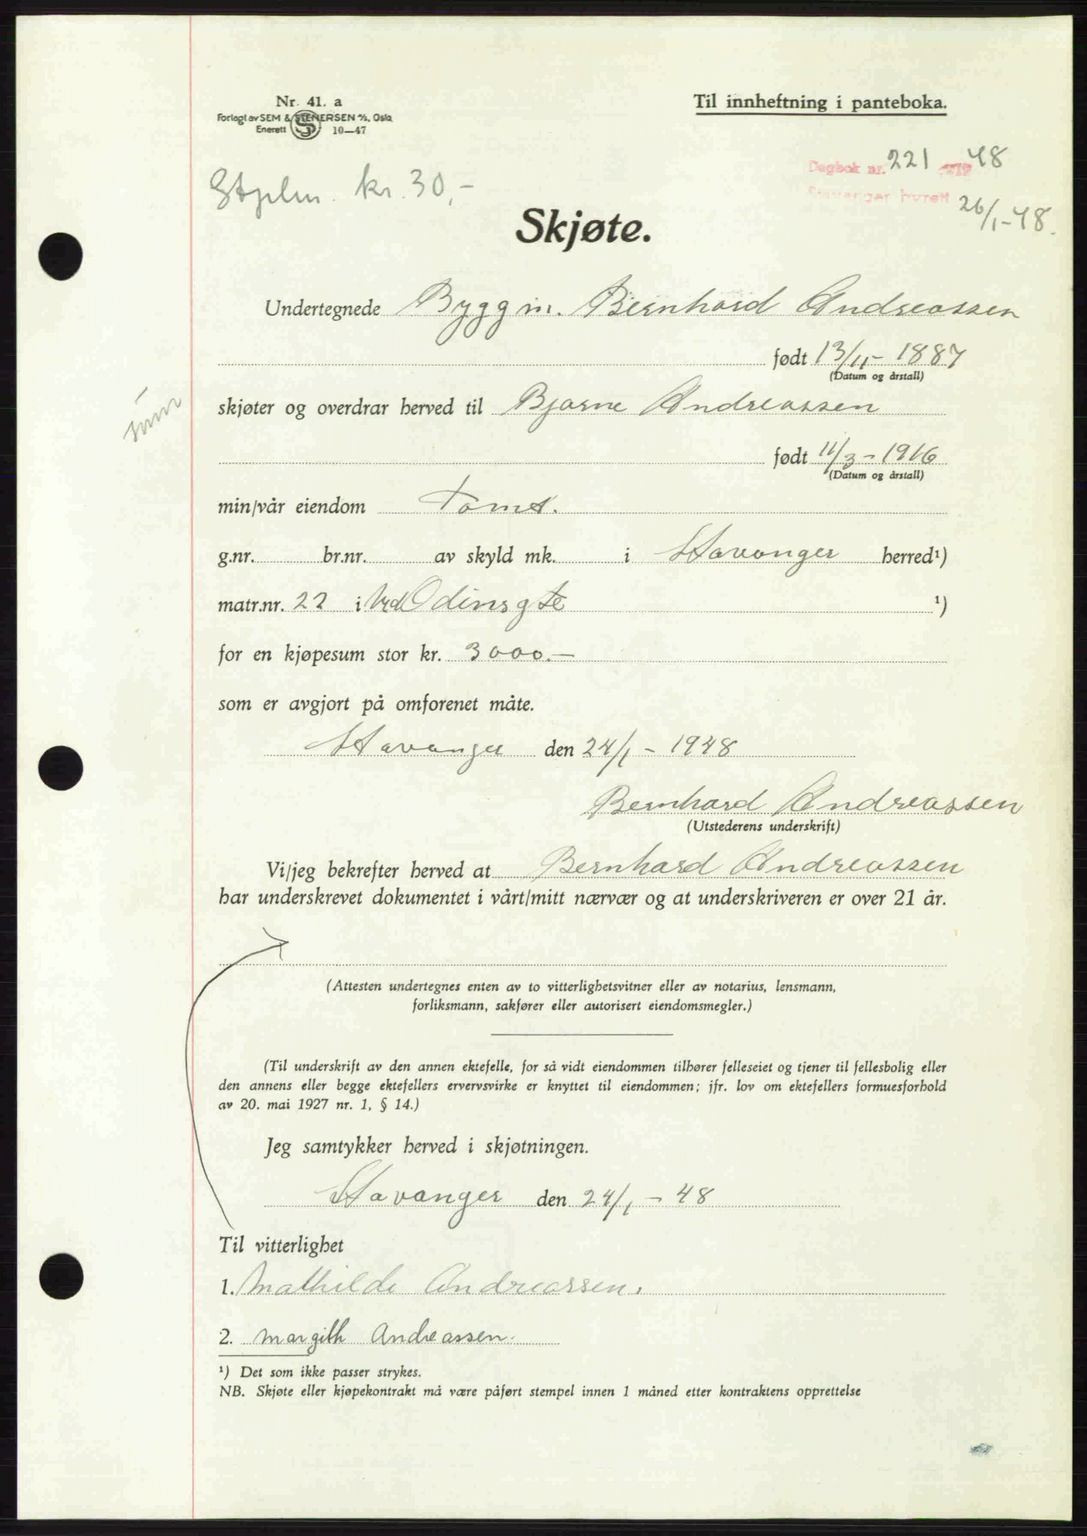 Nr. 41. a
Forlagt av SEM & STENERSEN A/S, Oslo
Enerett 10—47
Til innheftning i panteboka.
Dagbok nr. 221 1948
Stavanger byrett 26/1-48.
Stplm. kr. 30,-
Skjøte.
Undertegnede Byggm. Bernhard Andreassen
født 13/11 - 1887
(Datum og årstall)
skjøter og overdrar herved til Bjarne Andreassen
født 11/3 - 1916
(Datum og årstall)
min/vår eiendom Tomt.
g.nr. br.nr. av skyld mk. i Stavanger herred¹)
matr.nr. 22 i Ved Odinsgte ¹)
for en kjøpesum stor kr. 3000.-
som er avgjort på omforenet måte.
Stavanger den 24/1 - 1948
Bernhard Andreassen
(Utstederens underskrift)
Vi/jeg bekrefter herved at Bernhard Andreassen
har underskrevet dokumentet i vårt/mitt nærvær og at underskriveren er over 21 år.
(Attesten undertegnes enten av to vitterlighetsvitner eller av notarius, lensmann,
forliksmann, sakfører eller autorisert eiendomsmegler.)
(Til underskrift av den annen ektefelle, for så vidt eiendommen tilhører felleseiet og tjener til fellesbolig eller
den annens eller begge ektefellers ervervsvirke er knyttet til eiendommen; jfr. lov om ektefellers formuesforhold
av 20. mai 1927 nr. 1, § 14.)
Jeg samtykker herved i skjøtningen.
Stavanger den 24/1 - 48
Til vitterlighet
1. Mathilde Andreassen.
2. Margith Andreassen.
¹) Det som ikke passer strykes.
NB. Skjøte eller kjøpekontrakt må være påført stempel innen 1 måned etter kontraktens opprettelse